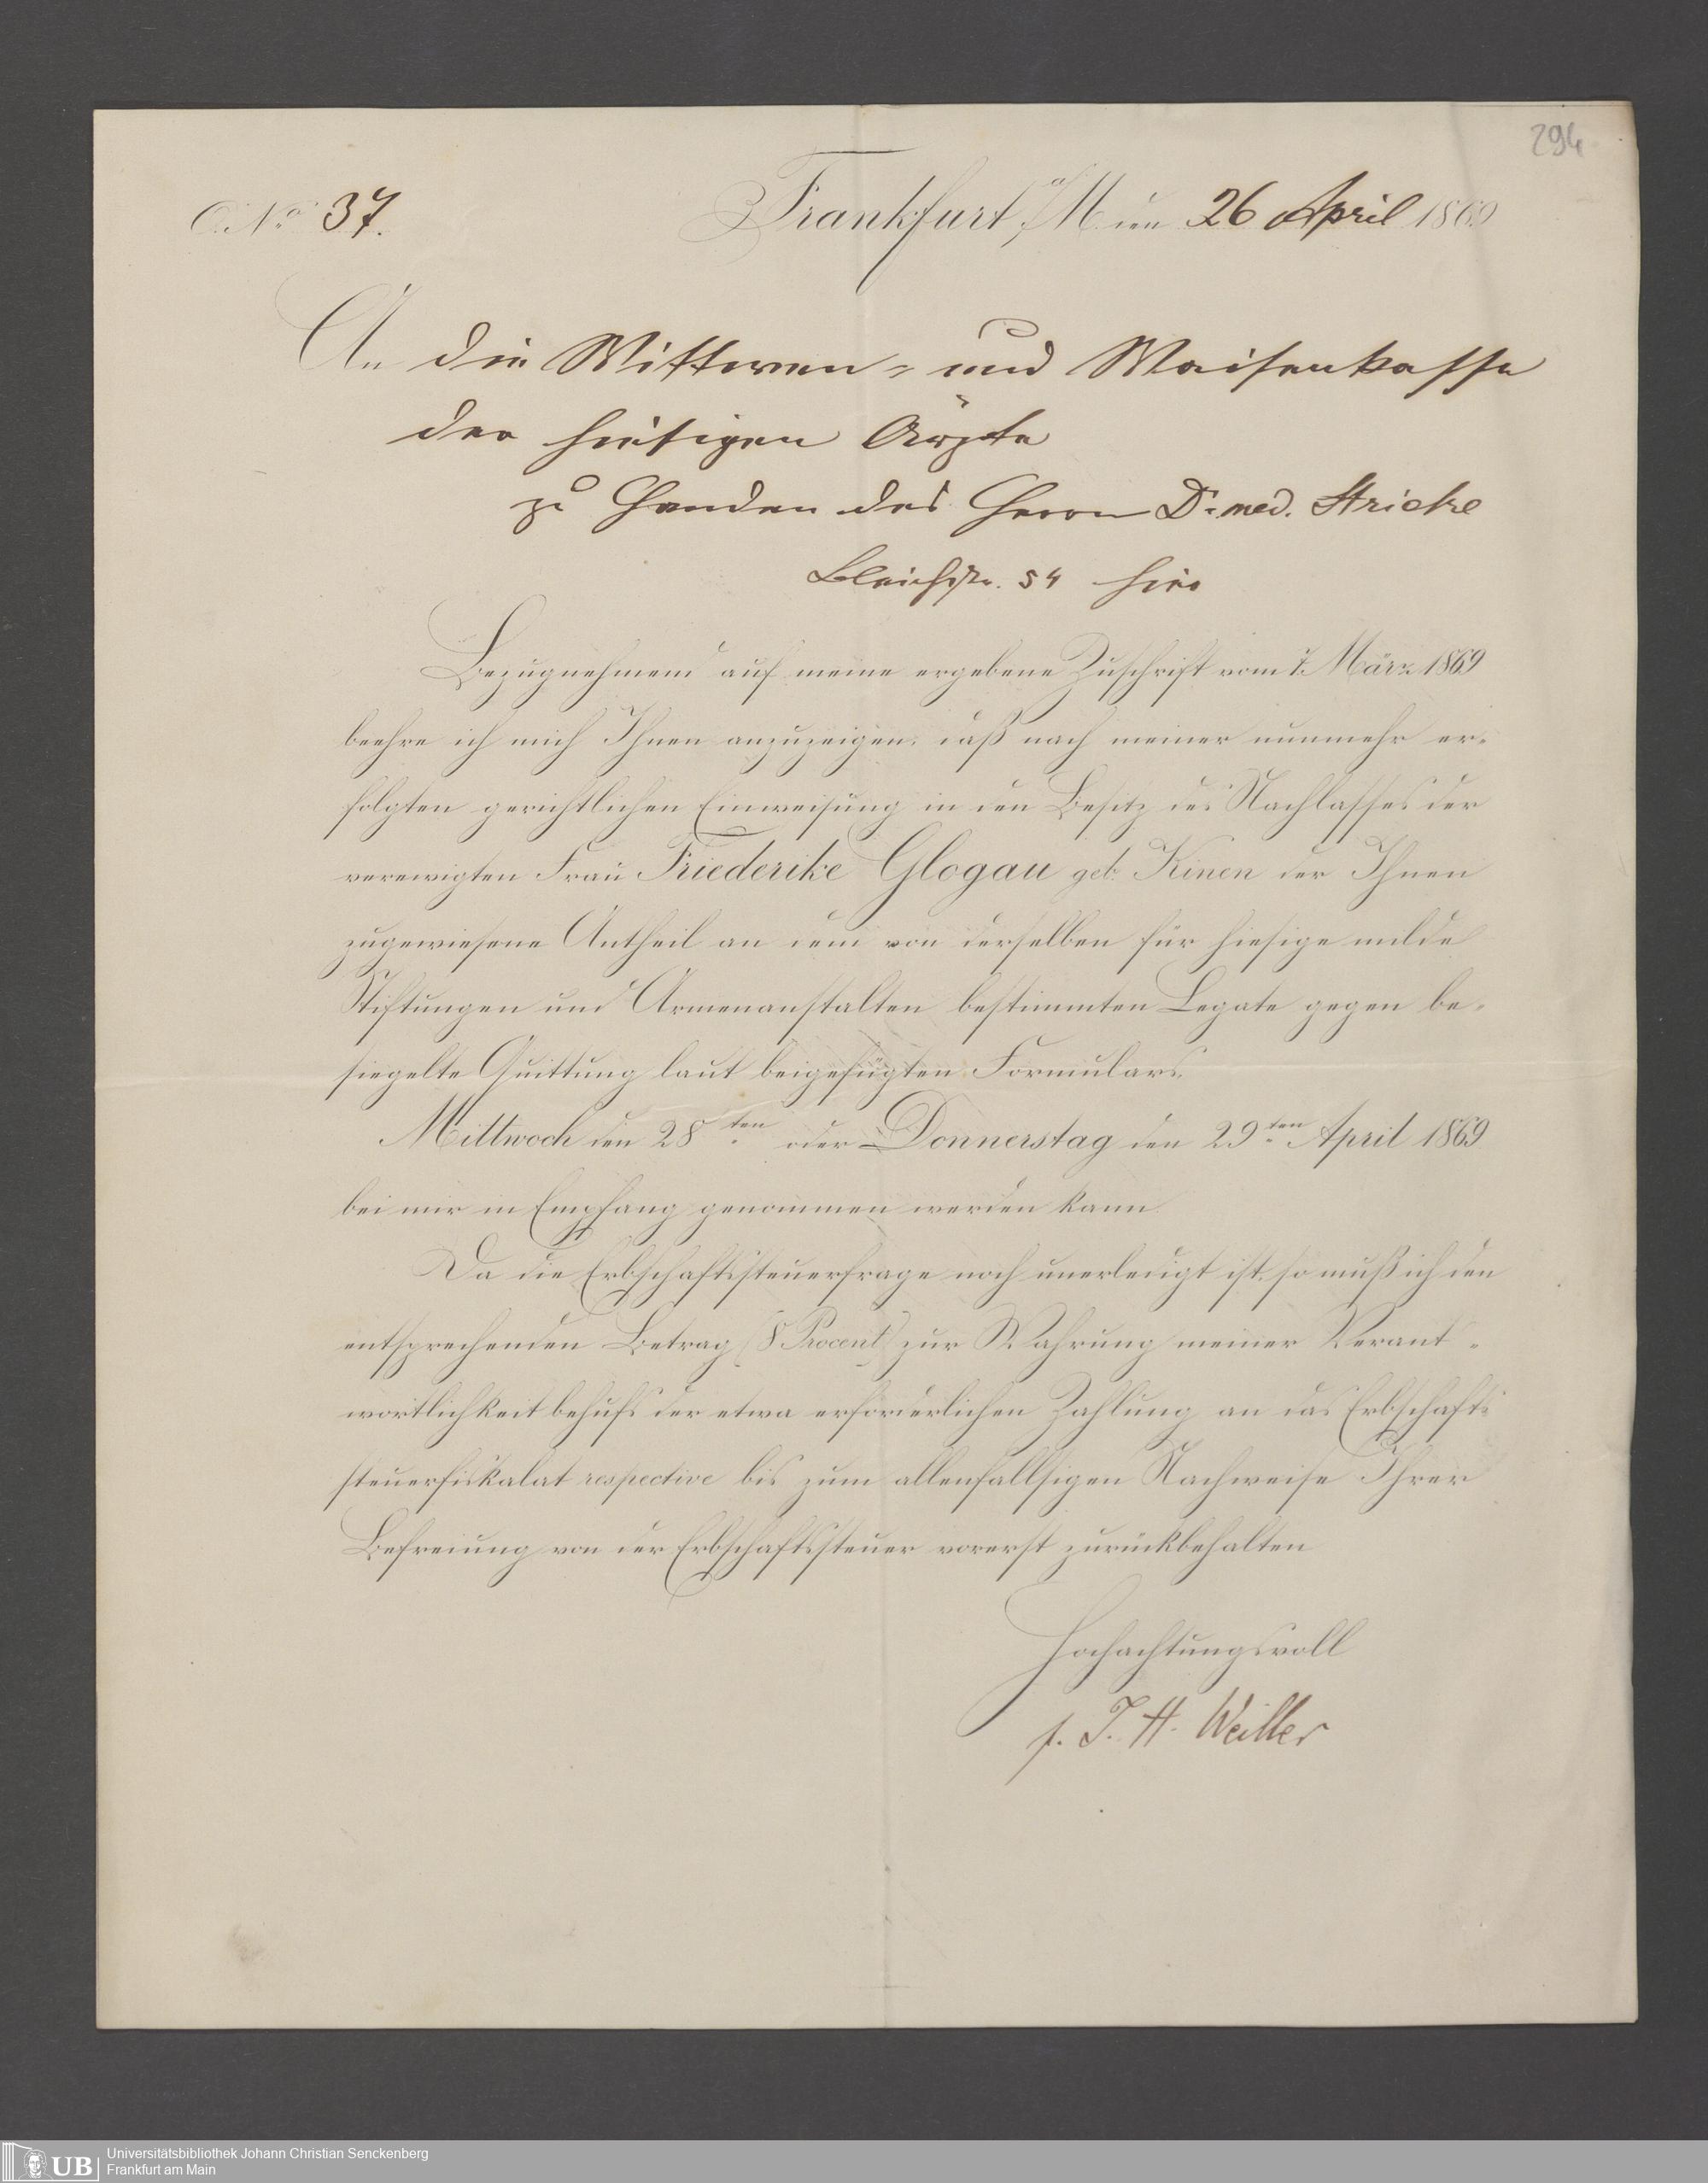 294
No 37.
Frankfurt a/M den 26 April 1869
An die Wittwen- und Waisenkasse
der hiesigen Ärzte
zu Handen des Herrn Dr. med. Stricke
Bleichstr. 54 hier
Bezugnehmend auf meine ergebene Zuschrift vom 1. März 1869
beehre ich mich Ihnen anzuzeigen, daß nach meiner nunmehr er-
folgten gerichtlichen Einweisung in den Besitz des Nachlasses der
verewigten Frau Friederike Glogau geb. Kinen der Ihnen
zugewiesene Antheil an dem von derselben für hiesige milde
Stiftungen und Armenanstalten bestimmten Legate gegen be-
siegelte Quittung laut beigefügten Formulars
Mittwoch den 28ten oder Donnerstag den 29ten April 1869
bei mir in Empfang genommen werden kann.
Da die Erbschaftssteuerfrage noch unerledigt ist, so muß ich den
entsprechenden Betrag (8 Procent) zur Wahrung meiner Verant-
wortlichkeit behufs der etwa erforderlichen Zahlung an das Erbschafts
steuerfiskalat respective bis zum allenfallsigen Nachweise Ihrer
Befreiung von der Erbschaftssteuer vorerst zurückbehalten
Hochachtungsvoll
J. H. Weiller
UB
Universitätsbibliothek Johann Christian Senckenberg
Frankfurt am Main